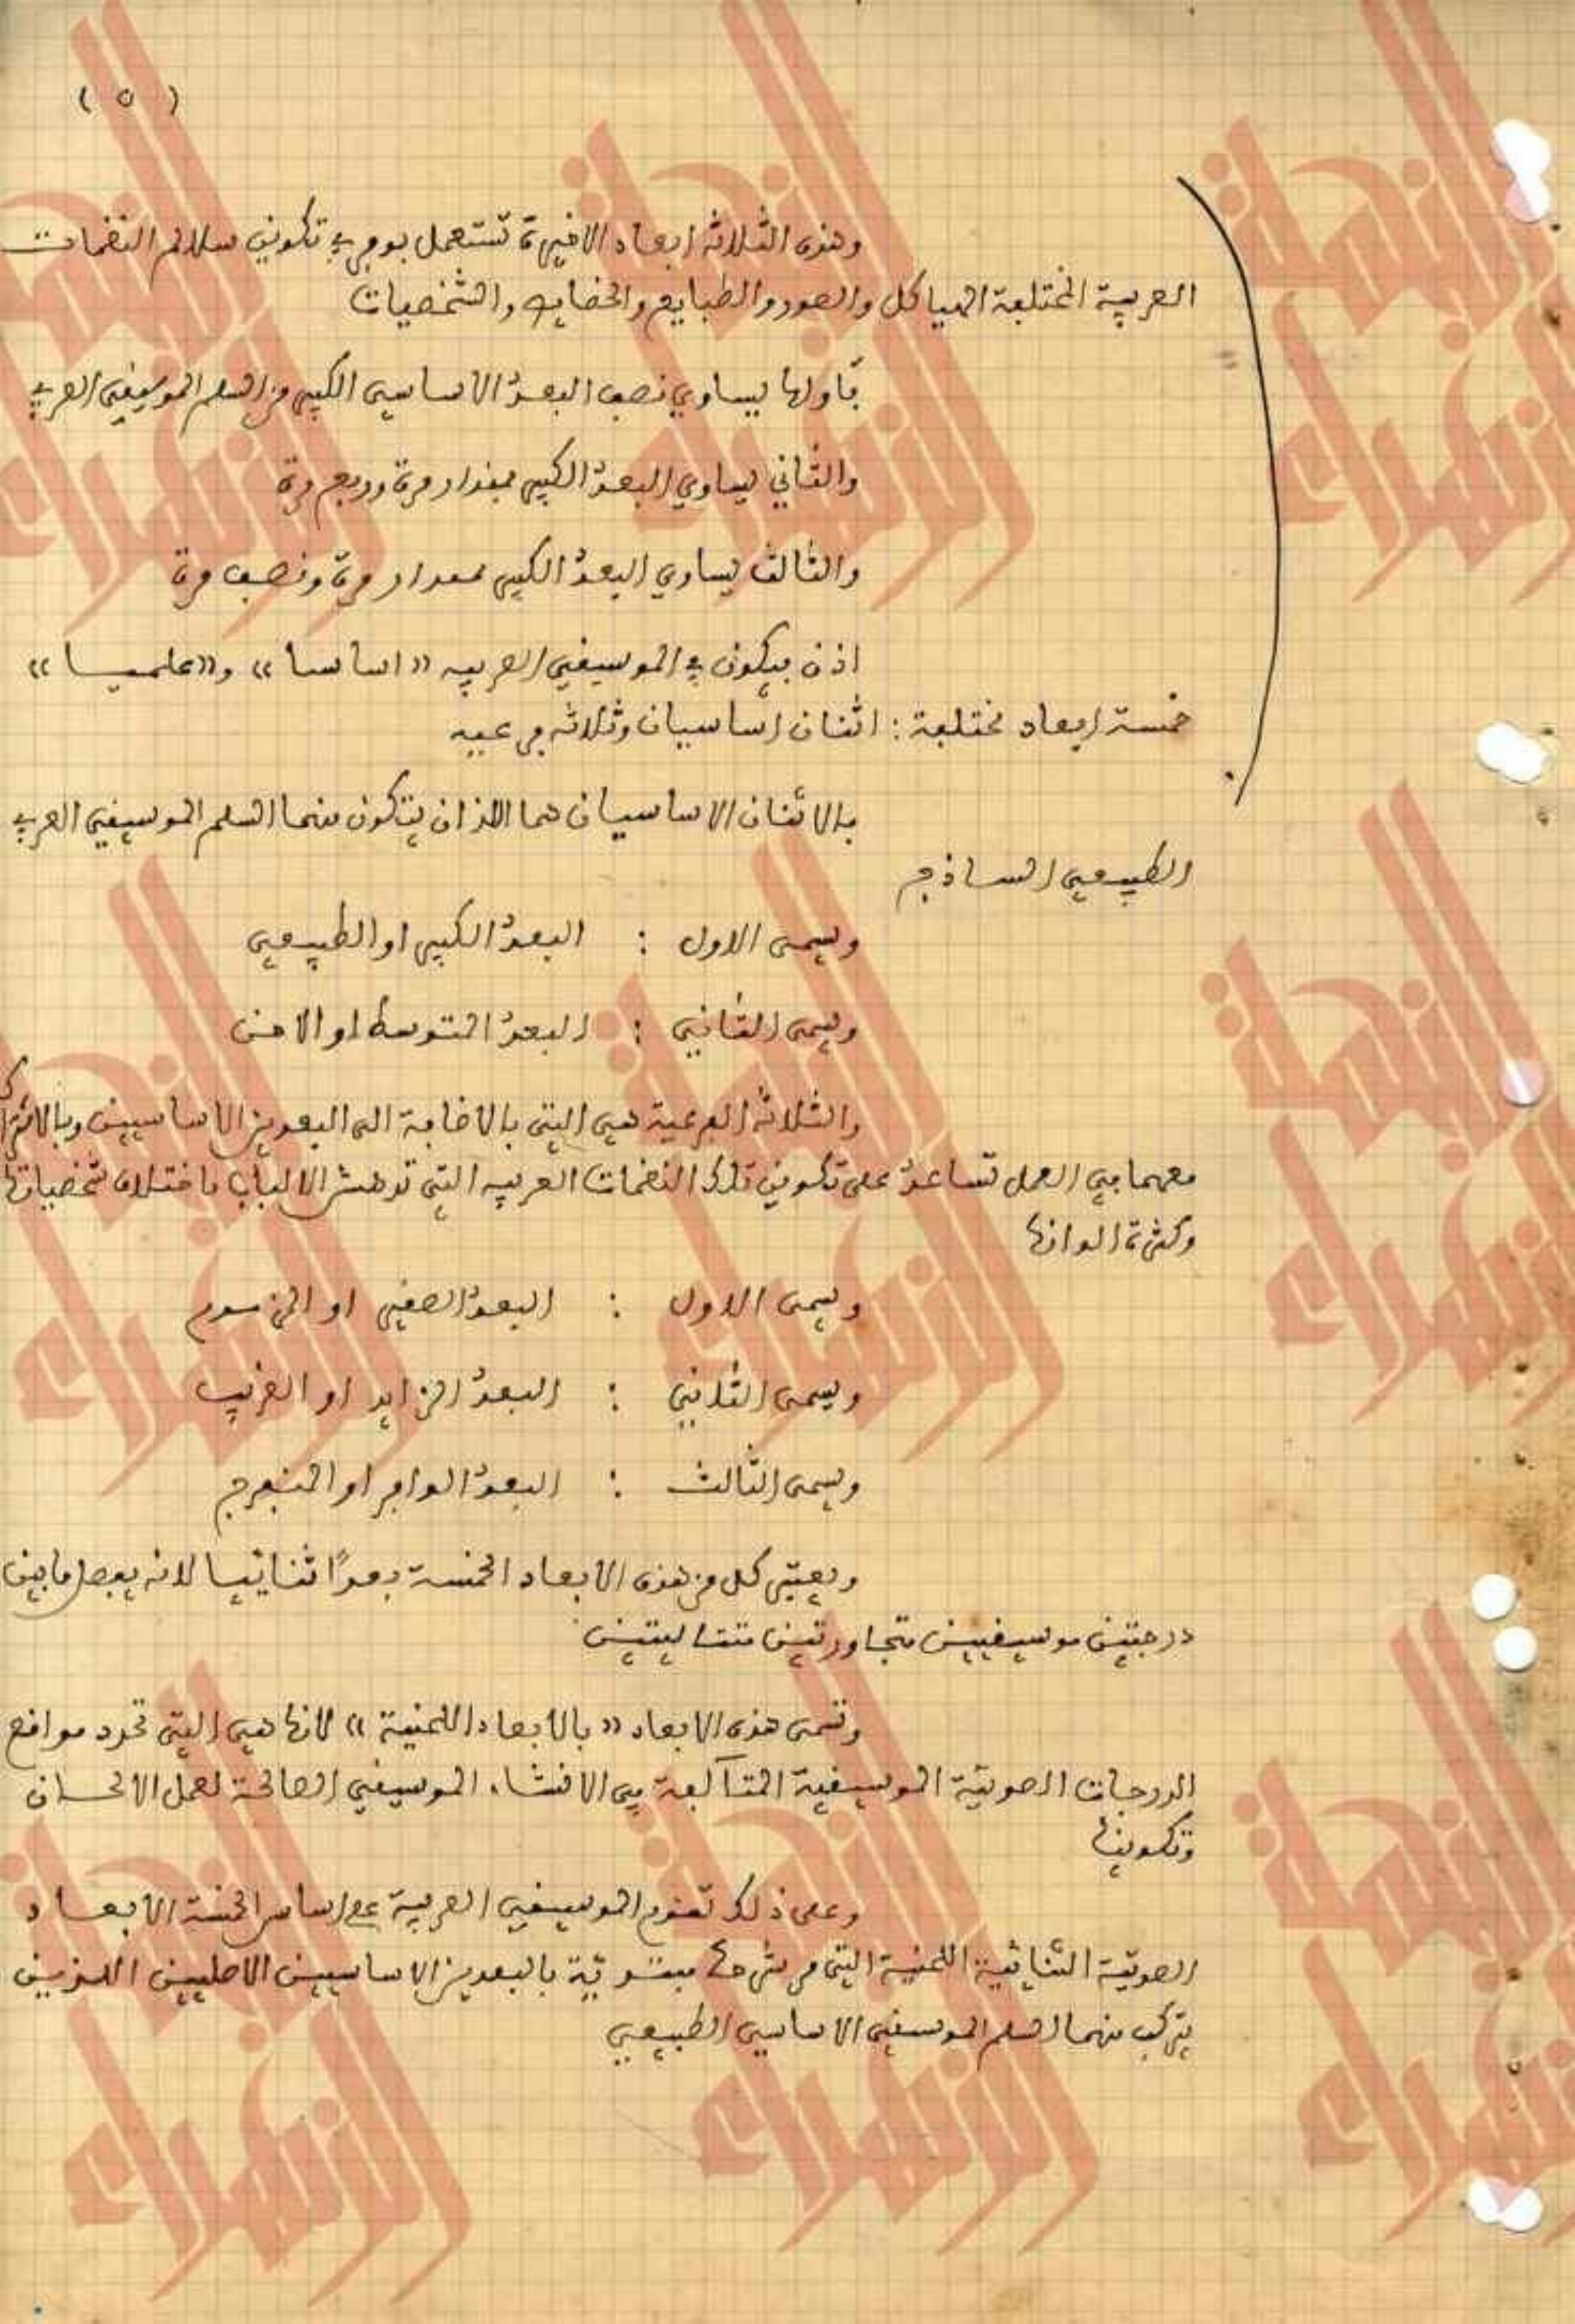 ( ٥ )
وهذه الثلاثة ابعاد الاخيرة تستعمل بوفرة في تكوين سلالم النغمات
العربية المختلفة الهياكل والصور والطبايع والخصايص والشخصيات
فأولها يساوي نصف البعد الاساسي الكبير من السلم الموسيقي العربي
والثاني يساوي البعد الكبير بمقدار مرة وربع مرة
والثالث يساوي البعد الكبير بمقدار مرة ونصف مرة
اذن فيكون في الموسيقي العربيه «اساسا» و«علميا»
خمسة ابعاد مختلفة : اثنان اساسيان وثلاثه فرعيه
فالاثنان الاساسيان هما اللذان يتكون منهما السلم الموسيقي العربي
الطبيعي الساذج
ويسمى الاول : البعد الكبير او الطبيعي
ويسمى الثاني : البعد المتوسط او
والثلاثة الفرعية هي التي بالاضافة الى البعدين الاساسيين وبالاشتراك
معهما في العمل تساعد على تكوين تلك النغمات العربيه التي تدهش الالباب باختلاف شخصياتها
وكثرة الوانها
ويسمى الاول : البعد الصغير او
ويسمى الثاني : البعد الزايد او الغريب
ويسمى الثالث : البعد الوافر او المنفرج
ويعتبر كل من هذه الابعاد الخمسة بعدًا ثنائيا لانه يفصل ما بين
درجتين موسيقيين متجاورتين متتاليتين
وتسمى هذه الابعاد «بالابعاد اللحنية» لانها هي التي تحدد مواقع
الدرجات الصوتية الموسيقية المتآلفة في الانشاء الموسيقي الصالحة لعمل الالحان
وتكوينها
وعلى ذلك تقوم الموسيقي العربية على اساس الخمسة الابعاد
الصوتية الثنائية اللحنية التي مر شرحها بالبعدين الاساسيين الاصليين اللذين
يتركب منهما السلم الموسيقي الاساسي الطبيعي
النجمة الزهراء